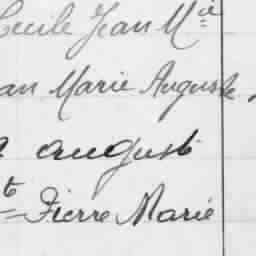 Cecile Jean Mie
an Marie Auguste,
auguste
te Pierre Marie